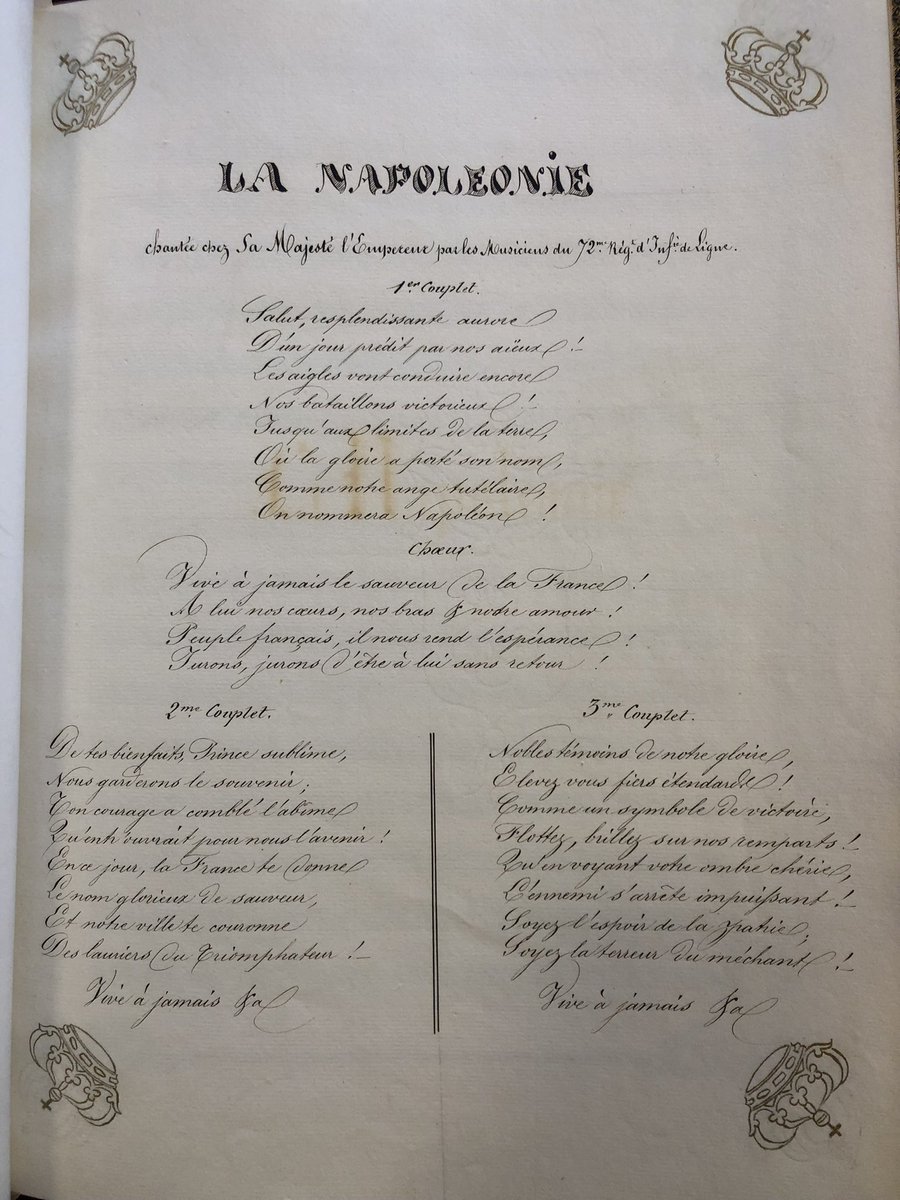 LA NAPOLEONIE
chantée chez Sa Majesté l'Empereur par les Musiciens du 72me Régt d'Infie de Ligne.
1er Couplet.
Salut, resplendissante aurore
D'un jour prédit par nos aïeux !
Les aigles vont conduire encore
Nos bataillons victorieux !
Jusqu'aux limites de la terre,
Où la gloire a porté son nom,
Comme notre ange tutélaire,
On nommera Napoléon !
Chœur.
Vive à jamais le sauveur de la France !
A lui nos cœurs, nos bras & notre amour !
Peuple français, il nous rend l'espérance !
Jurons, jurons d'être à lui sans retour !
2me Couplet.
De tes bienfaits, Prince sublime,
Nous garderons le souvenir ;
Ton courage a comblé l'abîme
Qu'entr'ouvrait pour nous l'avenir !
En ce jour, la France te donne
Le nom glorieux de sauveur,
Et notre ville te couronne
Des lauriers du Triomphateur !
Vive à jamais &a
3me Couplet.
Nobles témoins de notre gloire,
Elevez vous fiers étendards !
Comme un symbole de victoire,
Flottez, brillez sur nos remparts !
Qu'en voyant votre ombre chérie,
L'ennemi s'arrête impuissant !
Soyez l'espoir de la patrie ;
Soyez la terreur du méchant !
Vive à jamais &a